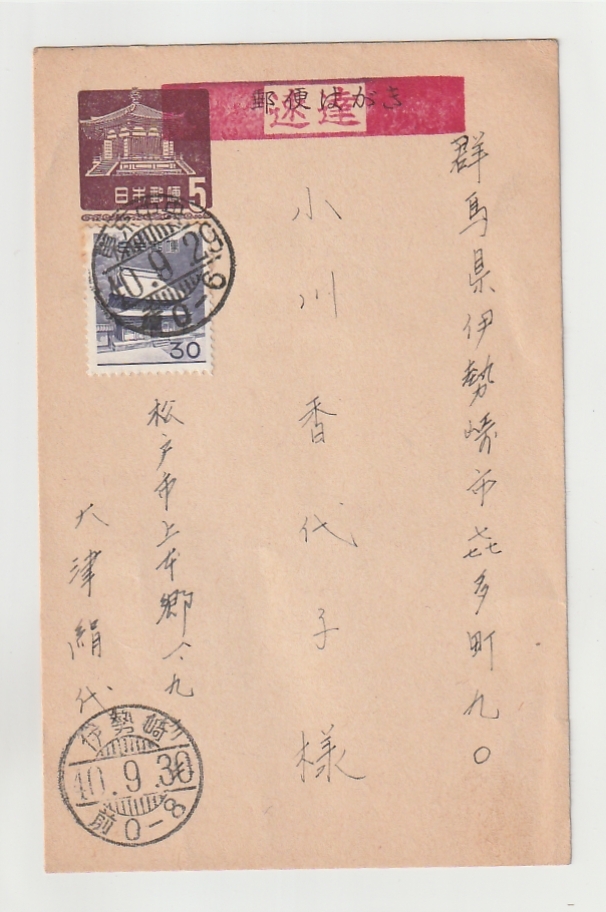 郵便はがき
速達
日本郵便
5
30
10.9.2
0-6
群馬県伊勢崎市㐂多町九〇
小川香代子様
松戸市上本郷六九
大津絹代
伊勢崎
40.9.30
前0-8